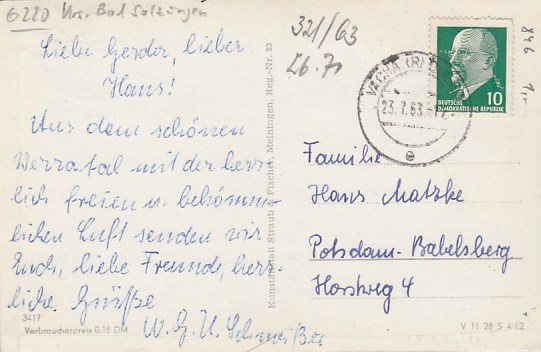 6220 Krs. Bad Salzungen
Liebe Gerda, lieber
Hans!
Aus dem schönen
Werratal mit der herr-
lich freien u. bekömm-
lichen Luft senden wir
Euch, liebe Freunde, herz-
liche Grüsse
W. G. U.
3417
Verbraucherpreis 0,15 DM
Kunstanstalt Straub & Fischer, Meiningen, Reg.-Nr. 23
321/63
VACHA (R
23.7.63
e
DEUTSCHE
DEMOKRATISCHE REPUBLIK
10
846
Familie
Hans Matzke
Potsdam-Babelsberg
Horstweg 4
V 11 28 S 4/62